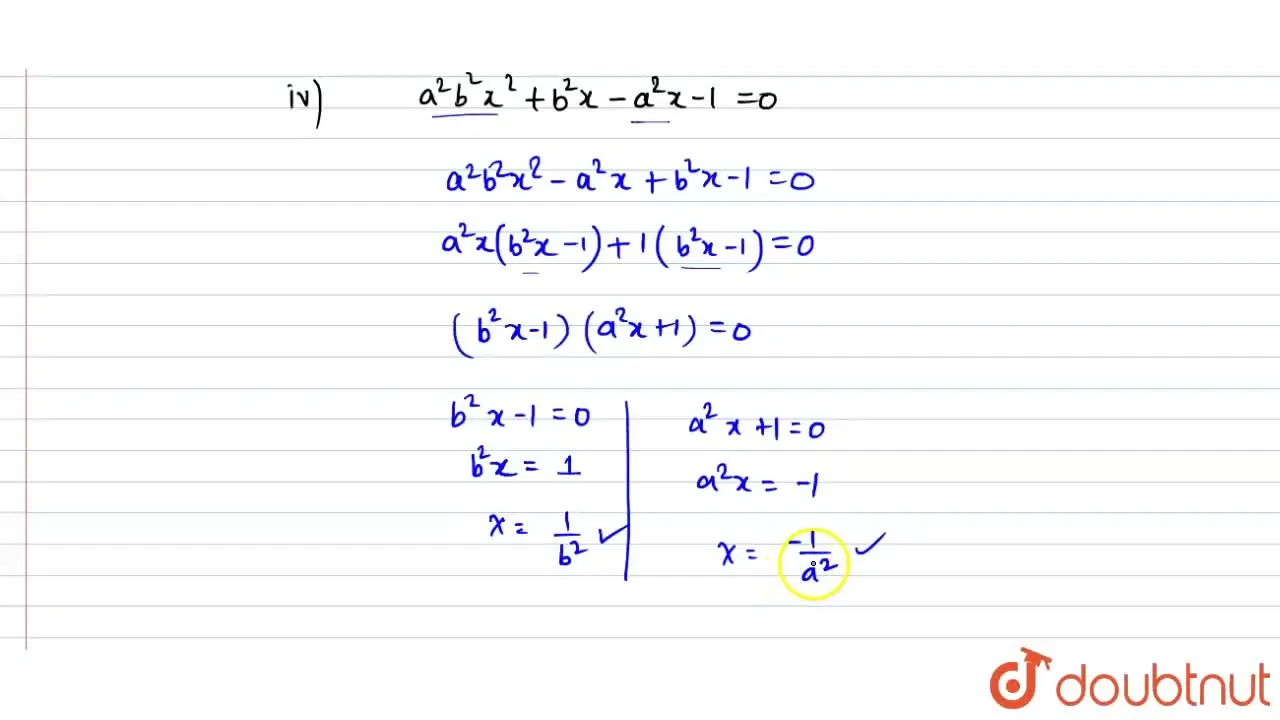 iv) a²b²x² + b²x - a²x - 1 = 0
a²b²x² - a²x + b²x - 1 = 0
a²x(b²x - 1) + 1(b²x - 1) = 0
(b²x - 1)(a²x + 1) = 0
b²x - 1 = 0
b²x = 1
x = 1/b² ✓
a²x + 1 = 0
a²x = -1
x = -1/a² ✓
doubtnut